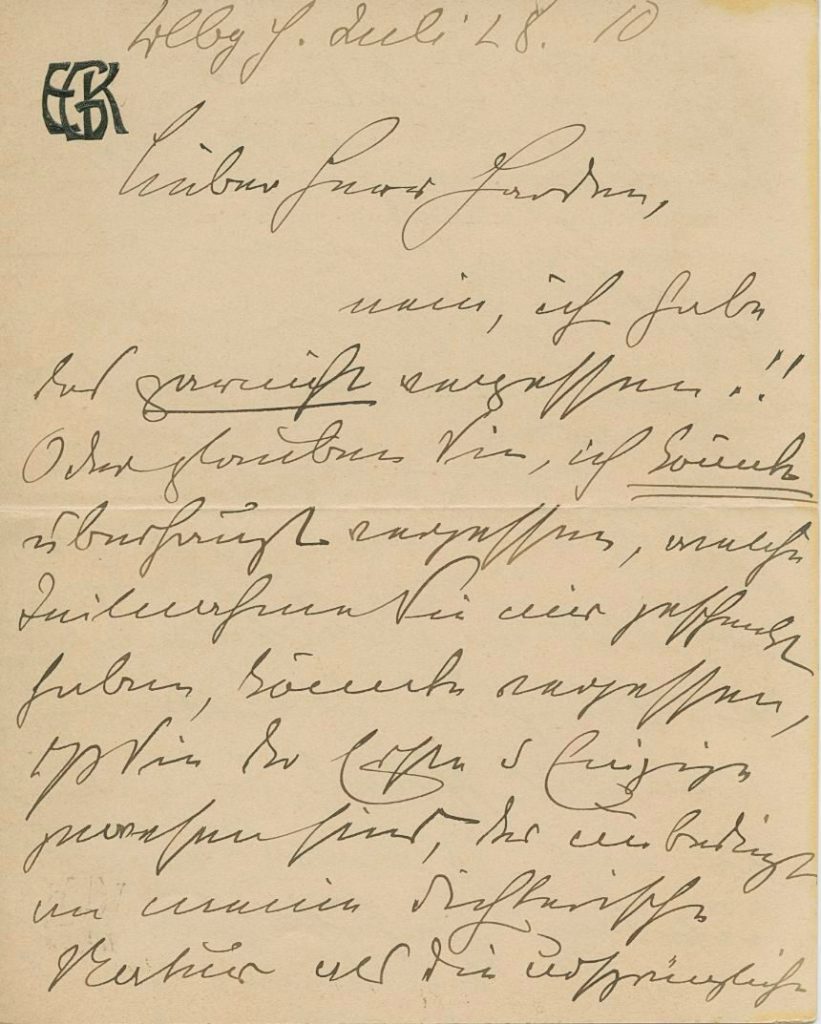 Juli 28. 10
EGK
Lieber Herr Harden,
nein, ich habe
das garnicht vergessen!!
Oder glauben Sie, ich könnte
überhaupt vergessen, welche
Teilnahme Sie mir geschenkt
haben, könnte vergessen,
daß Sie der Erste u Einzige
gewesen sind, der unbedingt
an meine dichterische
Natur als die ursprüngliche